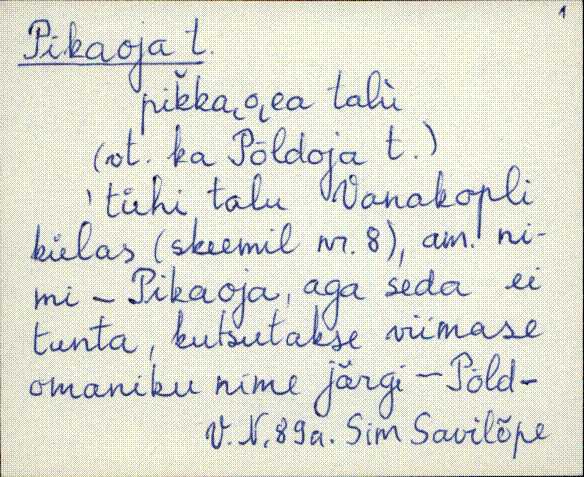 1
Pikaoja t.
pikka͔o͔ea talù
(vt. ka Põldoja t.)
'tühi talu Vanakopli
külas (skeemil nr. 8), am. ni-
mi - Pikaoja, aga seda ei
tunta, kutsutakse viimase
omaniku nime järgi - Põld-
V. N, 89a. Sim Savilõpe